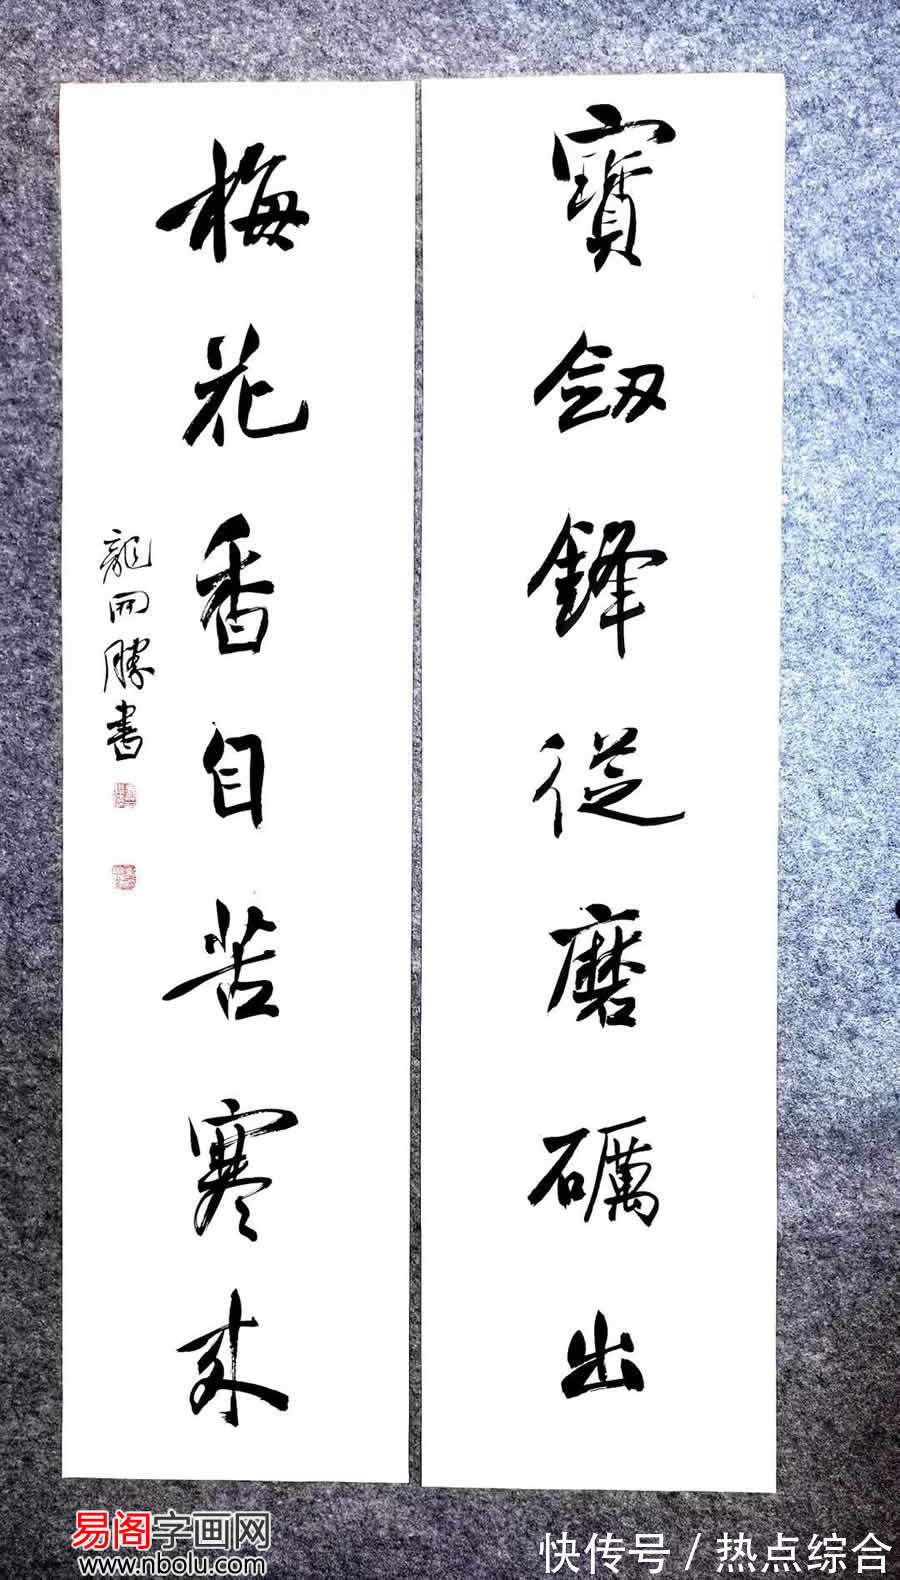 寶劔鋒從磨礪出
梅花香自苦寒来
龍開勝書
易阁字画网
www.nbolu.com
快传号 / 热点综合